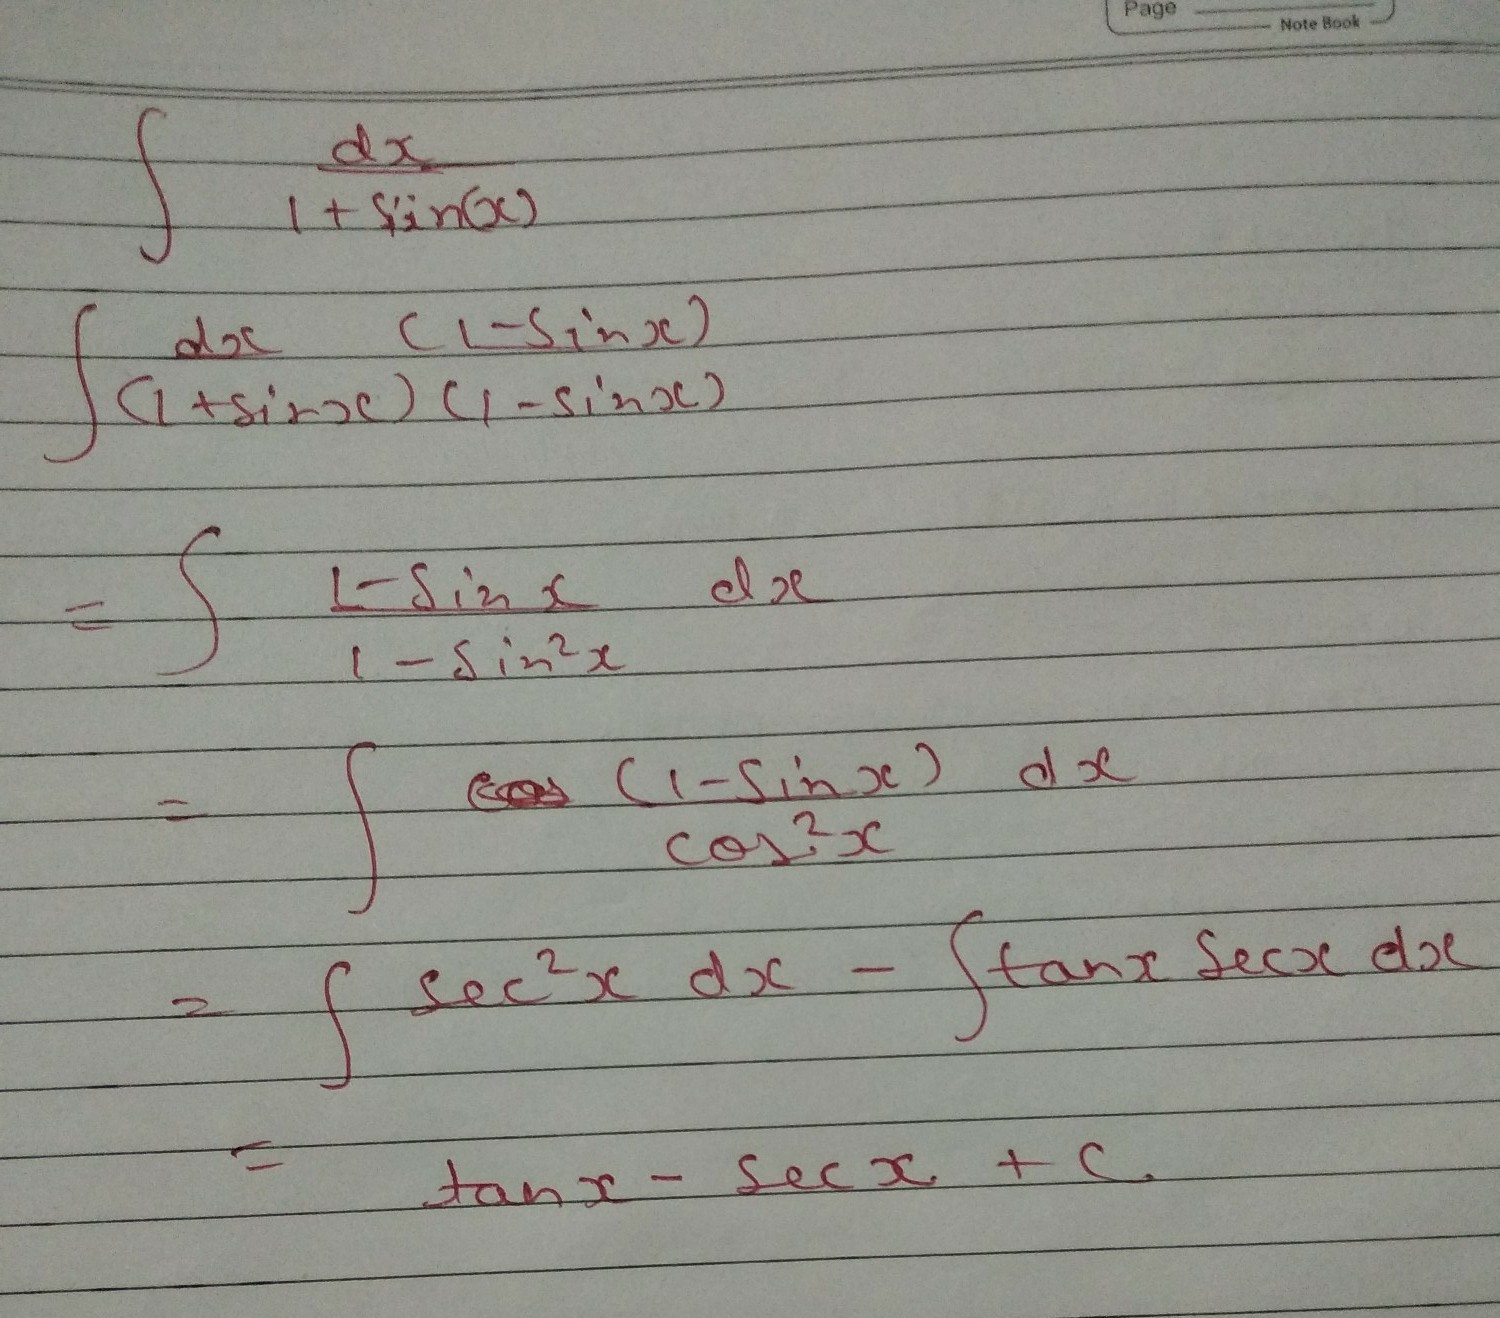 Page
Note Book
∫ dx / 1 + Sin(x)
∫ dx (1 - Sinx) / (1 + sinx) (1 - sinx)
= ∫ 1 - Sin x / 1 - Sin²x dx
= ∫ (1 - Sinx) / cos²x dx
= ∫ sec²x dx - ∫ tanx Secx dx
= tanx - Secx + C.